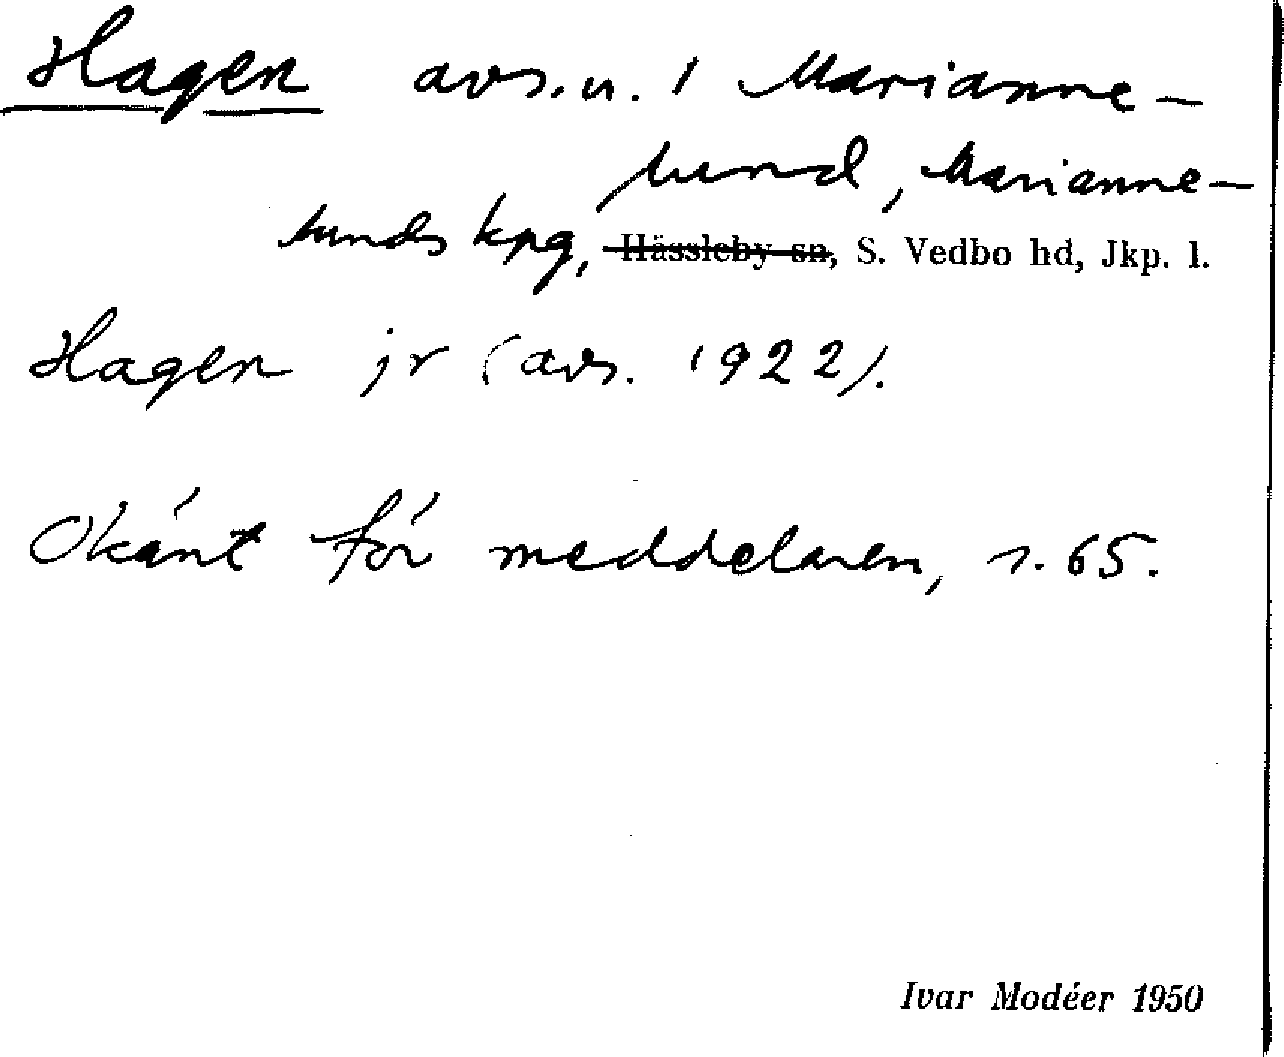 Hagen avs.n. i Marianne-
lund, Marianne-
lunds kpg, Hässleby sn, S. Vedbo hd, Jkp. l.
Hagen jr (avs. 1922).
Okänt för meddelaren, s. 65.
Ivar Modéer 1950